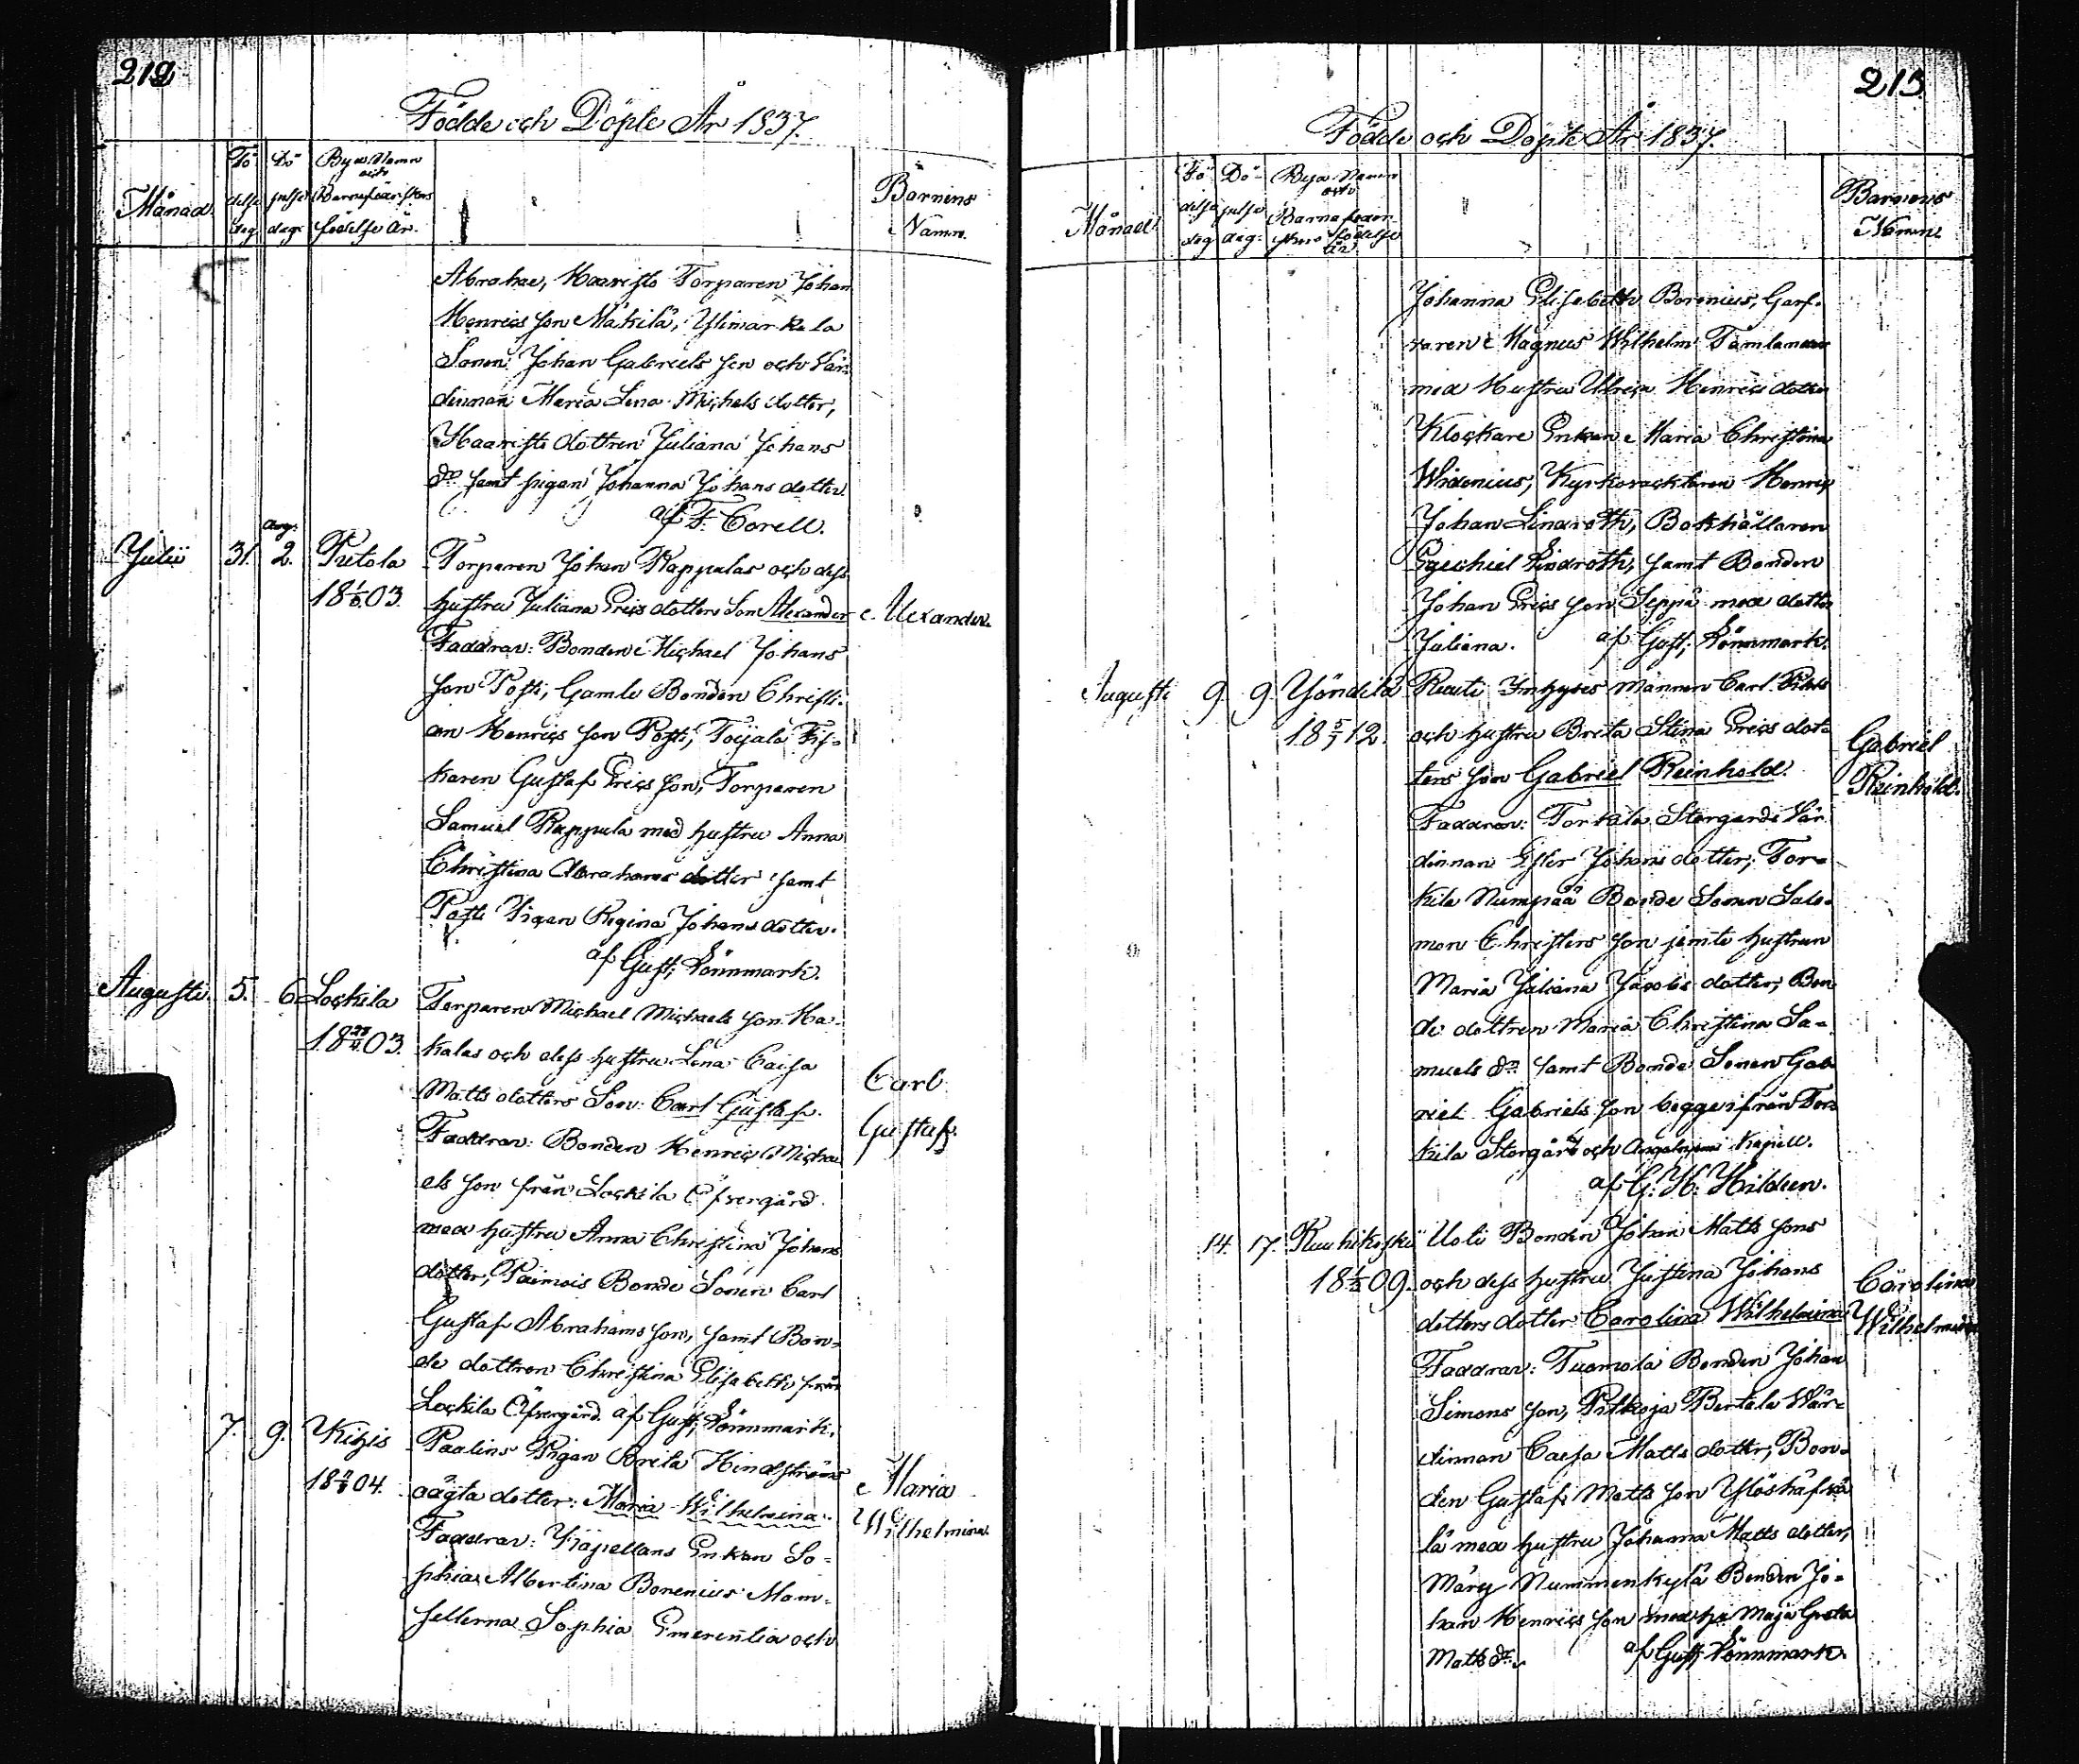 212
Födde och Döpte År 1837.
Månad.
Fö
delse
dag
Dö
pelse
dag.
Byas Namn
och
Barnaföderskans
födelse år.
Barnens
Namn.
Abrahae, Haaristo Torparen Johan
Henrics son Mäkilä, Ylimarkala
Sonen Johan Gabriels son och Vär-
dinnan Maria Lena Michels dotter,
Haaristo dottren Juliana Johans
dr samt pigan Johanna Johans dotter.
af F. Corell.
Julii 31. Aug: 2. Pietola Torparen Johan Rappulas och dess
18 03. hustru Juliana Erics dotters Son Alexander Alexander.
Faddrar: Bonden Michael Johans
son Posti, Gamle Bonden Christi-
an Henrics son Posti, Toijala Fis-
karen Gustaf Erics son, Torparen
Samuel Rappula med hustru Anna
Christina Abrahams dotter samt
Posti Pigan Regina Johans dotter.
af Gust: Lönnmark.
Augusti 5. 6 Lockila Torparen Michael Michaels son Ha-
18 03. kalas och dess hustru Lena Caisa
Matts dotters Son: Carl Gustaf. Carl
Gustaf.
Faddrar: Bonden Henric Micha
els son från Lockila Öfvergård
med hustru Anna Christina Johans
dotter, Paimois Bonde Sonen Carl
Gustaf Abrahams son, samt Bon-
de dottren Christina Elisabeth från
Lockila Öfvergård. af Gust: Lönnmark.
7. 9. Kihis Paalins Pigan Brita Hindströms
18 04. oägta dotter: Maria Wilhelmina. Maria
Wilhelmina.
Faddrar: Kapellans Enkan So-
phia Albertina Borenius Mam-
sellerna Sophia Emerentia och
213
Födde och Döpte År 1837.
Månad.
Fö
delse
dag
Dö-
pelse
dag.
Byas Namn
och
Barnaföder-
skans födelse
år.
Barnens
Namn.
Johanna Elisabeth Borenius, Garf-
varen Magnus Wilhelm Tamlander
med Hustru Ulrica Henrics dotter
Klockare Enkan Maria Christina
Widenius, Kyrkovacktaren Henric
Johan Lindroth, Bokhållaren
Egechiel Lindroth, samt Bonden
Johan Erics son Seppä med dotter
Juliana. af Gust: Lönnmark.
Augusti 9. 9. Yöndilä Rauti Inhyses Mannen Carl
18 12. och hustru Brita Stina Erics dot-
ters son Gabriel Reinhold. Gabriel
Reinhold.
Faddrar: Torkila Storgårds Vär
dinnan Ester Johans dotter, Tor-
kila Numpää Bonde Sonen Salo-
mon Christers son jemte hustrun
Maria Juliana Jacobs dotter, Bon
de dottren Maria Christina Sa-
muels dr samt Bonde Sonen Gab
riel Gabriels son begge ifrån Tor
kila Storgård och Angelniemi Kapell.
af G: H: Hildeen.
14. 17. Ruuhikoski Uoti Bonden Johan Matts sons
18 09. och dess hustru Justina Johans
dotters dotter Carolina Wilhelmina Carolina
Wilhelmina
Faddrar: Tuomola Bonden Johan
Simons son, Pitkoja Bertala Wär-
dinnan Caisa Matts dotter, Bon-
den Gustaf Matts son
lä med hustru Johanna Matts dotter,
Märy Nummenkylä Bonden Jo-
han Henrics son med hu Maja Greta
Matts dr. af Gust: Lönnmark.